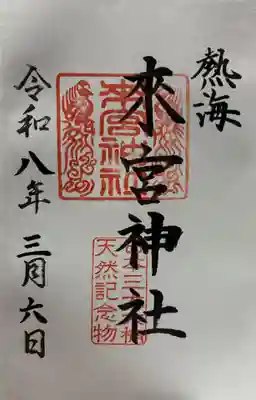 熱海
來宮神社
令和八年 三月六日
來宮神社
天然記念物